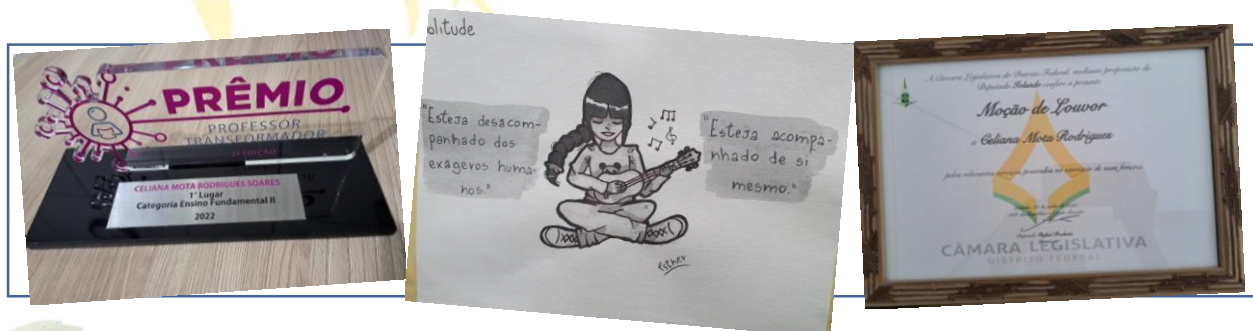 PRÊMIO
PROFESSOR
TRANSFORMADOR
2ª EDIÇÃO
CELIANA MOTA RODRIGUES SOARES
1° Lugar
Categoria Ensino Fundamental II
2022
olitude
"Esteja desacom-
panhado dos
exageros huma-
nos."
"Esteja acompa-
nhado de si
mesmo."
Esther
A Câmara Legislativa do Distrito Federal, mediante proposição do
Deputado Iolando confere a presente
Moção de Louvor
a Celiana Mota Rodrigues
pelos relevantes serviços prestados no exercício de suas funções
CÂMARA LEGISLATIVA
DISTRITO FEDERAL